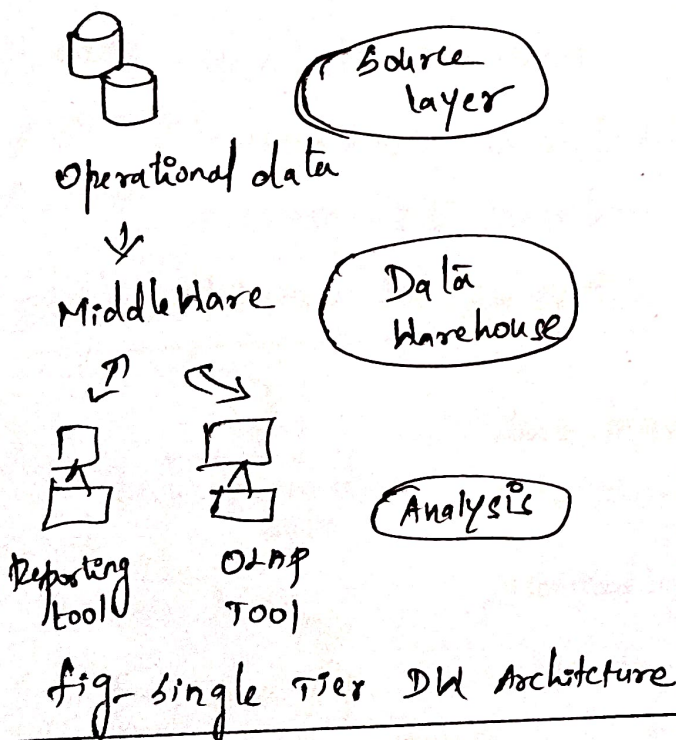 Source
layer
Operational data
Middleware
Data
Warehouse
Analysis
Reporting
tool
OLAP
TOOl
fig- Single Tier DW Architcture